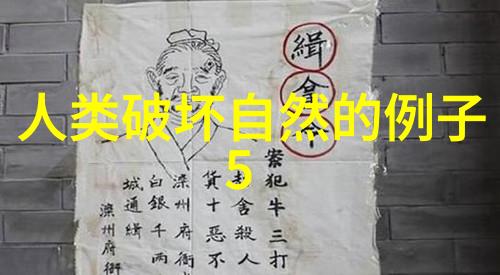 人类破坏自然的例子
5
緝拿令
案犯牛三打
舍殺人
貨十惡不
滦州府衙
白銀千两
城通緝
滦州府衙